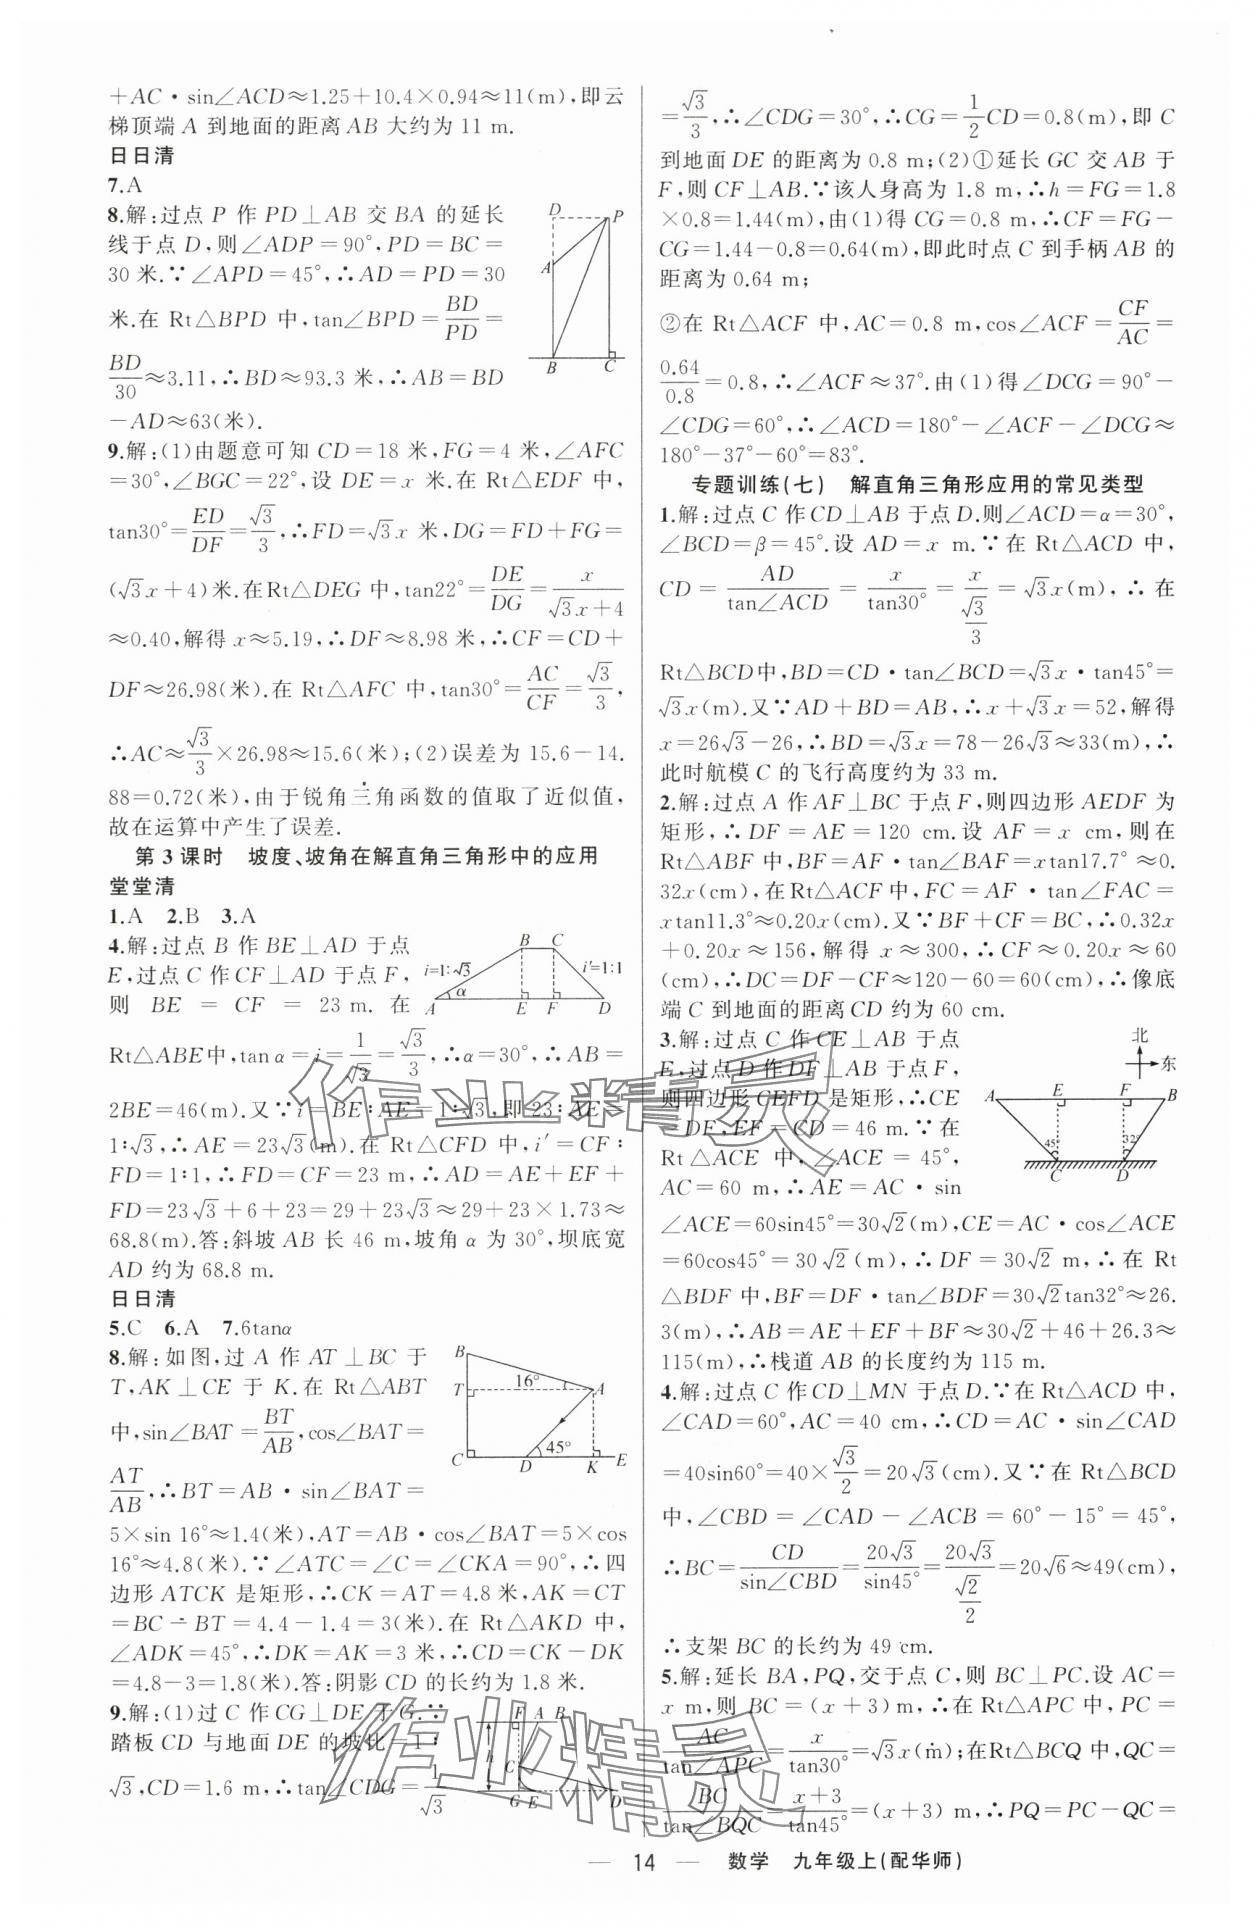 +AC·sin∠ACD≈1.25+10.4×0.94≈11(m),即云
梯顶端 A 到地面的距离 AB 大约为 11 m.
日日清
7.A
8.解:过点 P 作 PD⊥AB 交 BA 的延长
线于点 D,则∠ADP=90°,PD=BC=
30 米.∵∠APD=45°,∴AD=PD=30
米.在 Rt△BPD 中,tan∠BPD=BD/PD=
BD/30≈3.11,∴BD≈93.3 米,∴AB=BD
-AD≈63(米).
D P A B C
9.解:(1)由题意可知 CD=18 米,FG=4 米,∠AFC
=30°,∠BGC=22°,设 DE=x 米.在 Rt△EDF 中,
tan30°=ED/DF=√3/3,∴FD=√3x 米,DG=FD+FG=
(√3x+4)米.在Rt△DEG 中,tan22°=DE/DG=x/(√3x+4)
≈0.40,解得 x≈5.19,∴DF≈8.98 米,∴CF=CD+
DF≈26.98(米).在 Rt△AFC 中,tan30°=AC/CF=√3/3,
∴AC≈√3/3×26.98≈15.6(米);(2)误差为 15.6-14.
88=0.72(米),由于锐角三角函数的值取了近似值,
故在运算中产生了误差.
第 3 课时 坡度、坡角在解直角三角形中的应用
堂堂清
1.A 2.B 3.A
4.解:过点 B 作 BE⊥AD 于点
E,过点 C 作 CF⊥AD 于点 F,
则 BE = CF = 23 m. 在
B C i=1:√3 i′=1:1 α A E F D
Rt△ABE中,tan α=i=1/√3=√3/3,∴α=30°,∴AB=
2BE=46(m).又∵i=BE∶AE=1∶√3,即 23∶AE=
1∶√3,∴AE=23√3(m).在 Rt△CFD 中,i′=CF∶
FD=1∶1,∴FD=CF=23 m,∴AD=AE+EF+
FD=23√3+6+23=29+23√3≈29+23×1.73≈
68.8(m).答:斜坡 AB 长 46 m,坡角 α 为 30°,坝底宽
AD 约为 68.8 m.
日日清
5.C 6.A 7.6tanα
8.解:如图,过 A 作 AT⊥BC 于
T,AK⊥CE 于 K.在 Rt△ABT
中,sin∠BAT=BT/AB,cos∠BAT=
AT/AB,∴BT=AB·sin∠BAT=
B T 16° A C D 45° K E
5×sin 16°≈1.4(米),AT=AB·cos∠BAT=5×cos
16°≈4.8(米).∵∠ATC=∠C=∠CKA=90°,∴四
边形 ATCK 是矩形,∴CK=AT=4.8 米,AK=CT
=BC-BT=4.4-1.4=3(米).在 Rt△AKD 中,
∠ADK=45°,∴DK=AK=3 米,∴CD=CK-DK=
4.8-3=1.8(米).答:阴影 CD 的长约为 1.8 米.
9.解:(1)过 C 作 CG⊥DE 于 G.∵
踏板 CD 与地面 DE 的坡比=1∶
√3,CD=1.6 m,∴tan∠CDG=1/√3
F A B h C G E D
=√3/3,∴∠CDG=30°,∴CG=1/2CD=0.8(m),即 C
到地面 DE 的距离为 0.8 m;(2)①延长 GC 交 AB 于
F,则 CF⊥AB.∵该人身高为 1.8 m,∴h=FG=1.8
×0.8=1.44(m),由(1)得 CG=0.8 m,∴CF=FG-
CG=1.44-0.8=0.64(m),即此时点 C 到手柄 AB 的
距离为 0.64 m;
②在 Rt△ACF 中,AC=0.8 m,cos∠ACF=CF/AC=
0.64/0.8=0.8,∴∠ACF≈37°.由(1)得∠DCG=90°-
∠CDG=60°,∴∠ACD=180°-∠ACF-∠DCG≈
180°-37°-60°=83°.
专题训练(七) 解直角三角形应用的常见类型
1.解:过点 C 作 CD⊥AB 于点 D.则∠ACD=α=30°,
∠BCD=β=45°.设 AD=x m.∵在 Rt△ACD 中,
CD=AD/tan∠ACD=x/tan30°=x/(√3/3)=√3x(m),∴在
Rt△BCD中,BD=CD·tan∠BCD=√3x·tan45°=
√3x(m).又∵AD+BD=AB,∴x+√3x=52,解得
x=26√3-26,∴BD=√3x=78-26√3≈33(m),∴
此时航模 C 的飞行高度约为 33 m.
2.解:过点 A 作 AF⊥BC 于点 F,则四边形 AEDF 为
矩形,∴DF=AE=120 cm.设 AF=x cm,则在
Rt△ABF 中,BF=AF·tan∠BAF=xtan17.7°≈0.
32x(cm),在Rt△ACF中,FC=AF·tan∠FAC=
xtan11.3°≈0.20x(cm).又∵BF+CF=BC,∴0.32x
+0.20x≈156,解得 x≈300,∴CF≈0.20x≈60
(cm),∴DC=DF-CF≈120-60=60(cm),∴像底
端 C 到地面的距离 CD 约为 60 cm.
3.解:过点 C 作 CE⊥AB 于点
E,过点 D 作 DF⊥AB 于点 F,
则四边形 CEFD 是矩形,∴CE
=DF,EF=CD=46 m.∵在
Rt△ACE 中,∠ACE=45°,
AC=60 m,∴AE=AC·sin
北 东 A E F B 45° 32° C D
∠ACE=60sin45°=30√2(m),CE=AC·cos∠ACE
=60cos45°=30√2(m),∴DF=30√2 m,∴在 Rt
△BDF 中,BF=DF·tan∠BDF=30√2tan32°≈26.
3(m),∴AB=AE+EF+BF≈30√2+46+26.3≈
115(m),∴栈道 AB 的长度约为 115 m.
4.解:过点 C 作CD⊥MN 于点 D.∵在 Rt△ACD 中,
∠CAD=60°,AC=40 cm,∴CD=AC·sin∠CAD
=40sin60°=40×√3/2=20√3(cm).又∵在 Rt△BCD
中,∠CBD=∠CAD-∠ACB=60°-15°=45°,
∴BC=CD/sin∠CBD=20√3/sin45°=20√3/(√2/2)=20√6≈49(cm),
∴支架 BC 的长约为 49 cm.
5.解:延长 BA,PQ,交于点 C,则 BC⊥PC.设 AC=
x m,则 BC=(x+3)m,∴在Rt△APC 中,PC=
AC/tan∠APC=x/tan30°=√3x(m);在Rt△BCQ 中,QC=
BC/tan∠BQC=(x+3)/tan45°=(x+3) m,∴PQ=PC-QC=
作业精灵
作业精灵
— 14 — 数学 九年级上(配华师)